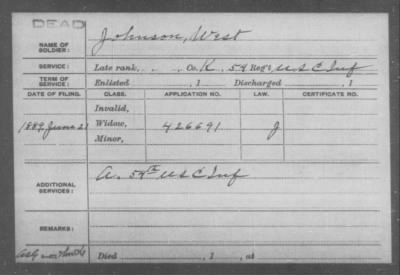 DEAD
NAME OF SOLDIER: Johnson, West
SERVICE: Late rank, Co. K, 54 Reg't, U S C Inf
TERM OF SERVICE: Enlisted , 1 Discharged , 1
DATE OF FILING. CLASS. APPLICATION NO. LAW. CERTIFICATE NO.
Invalid,
1889 June 21 Widow, 426691 J
Minor,
ADDITIONAL SERVICES: A. 54th U S C Inf
REMARKS:
Died , 1 , at